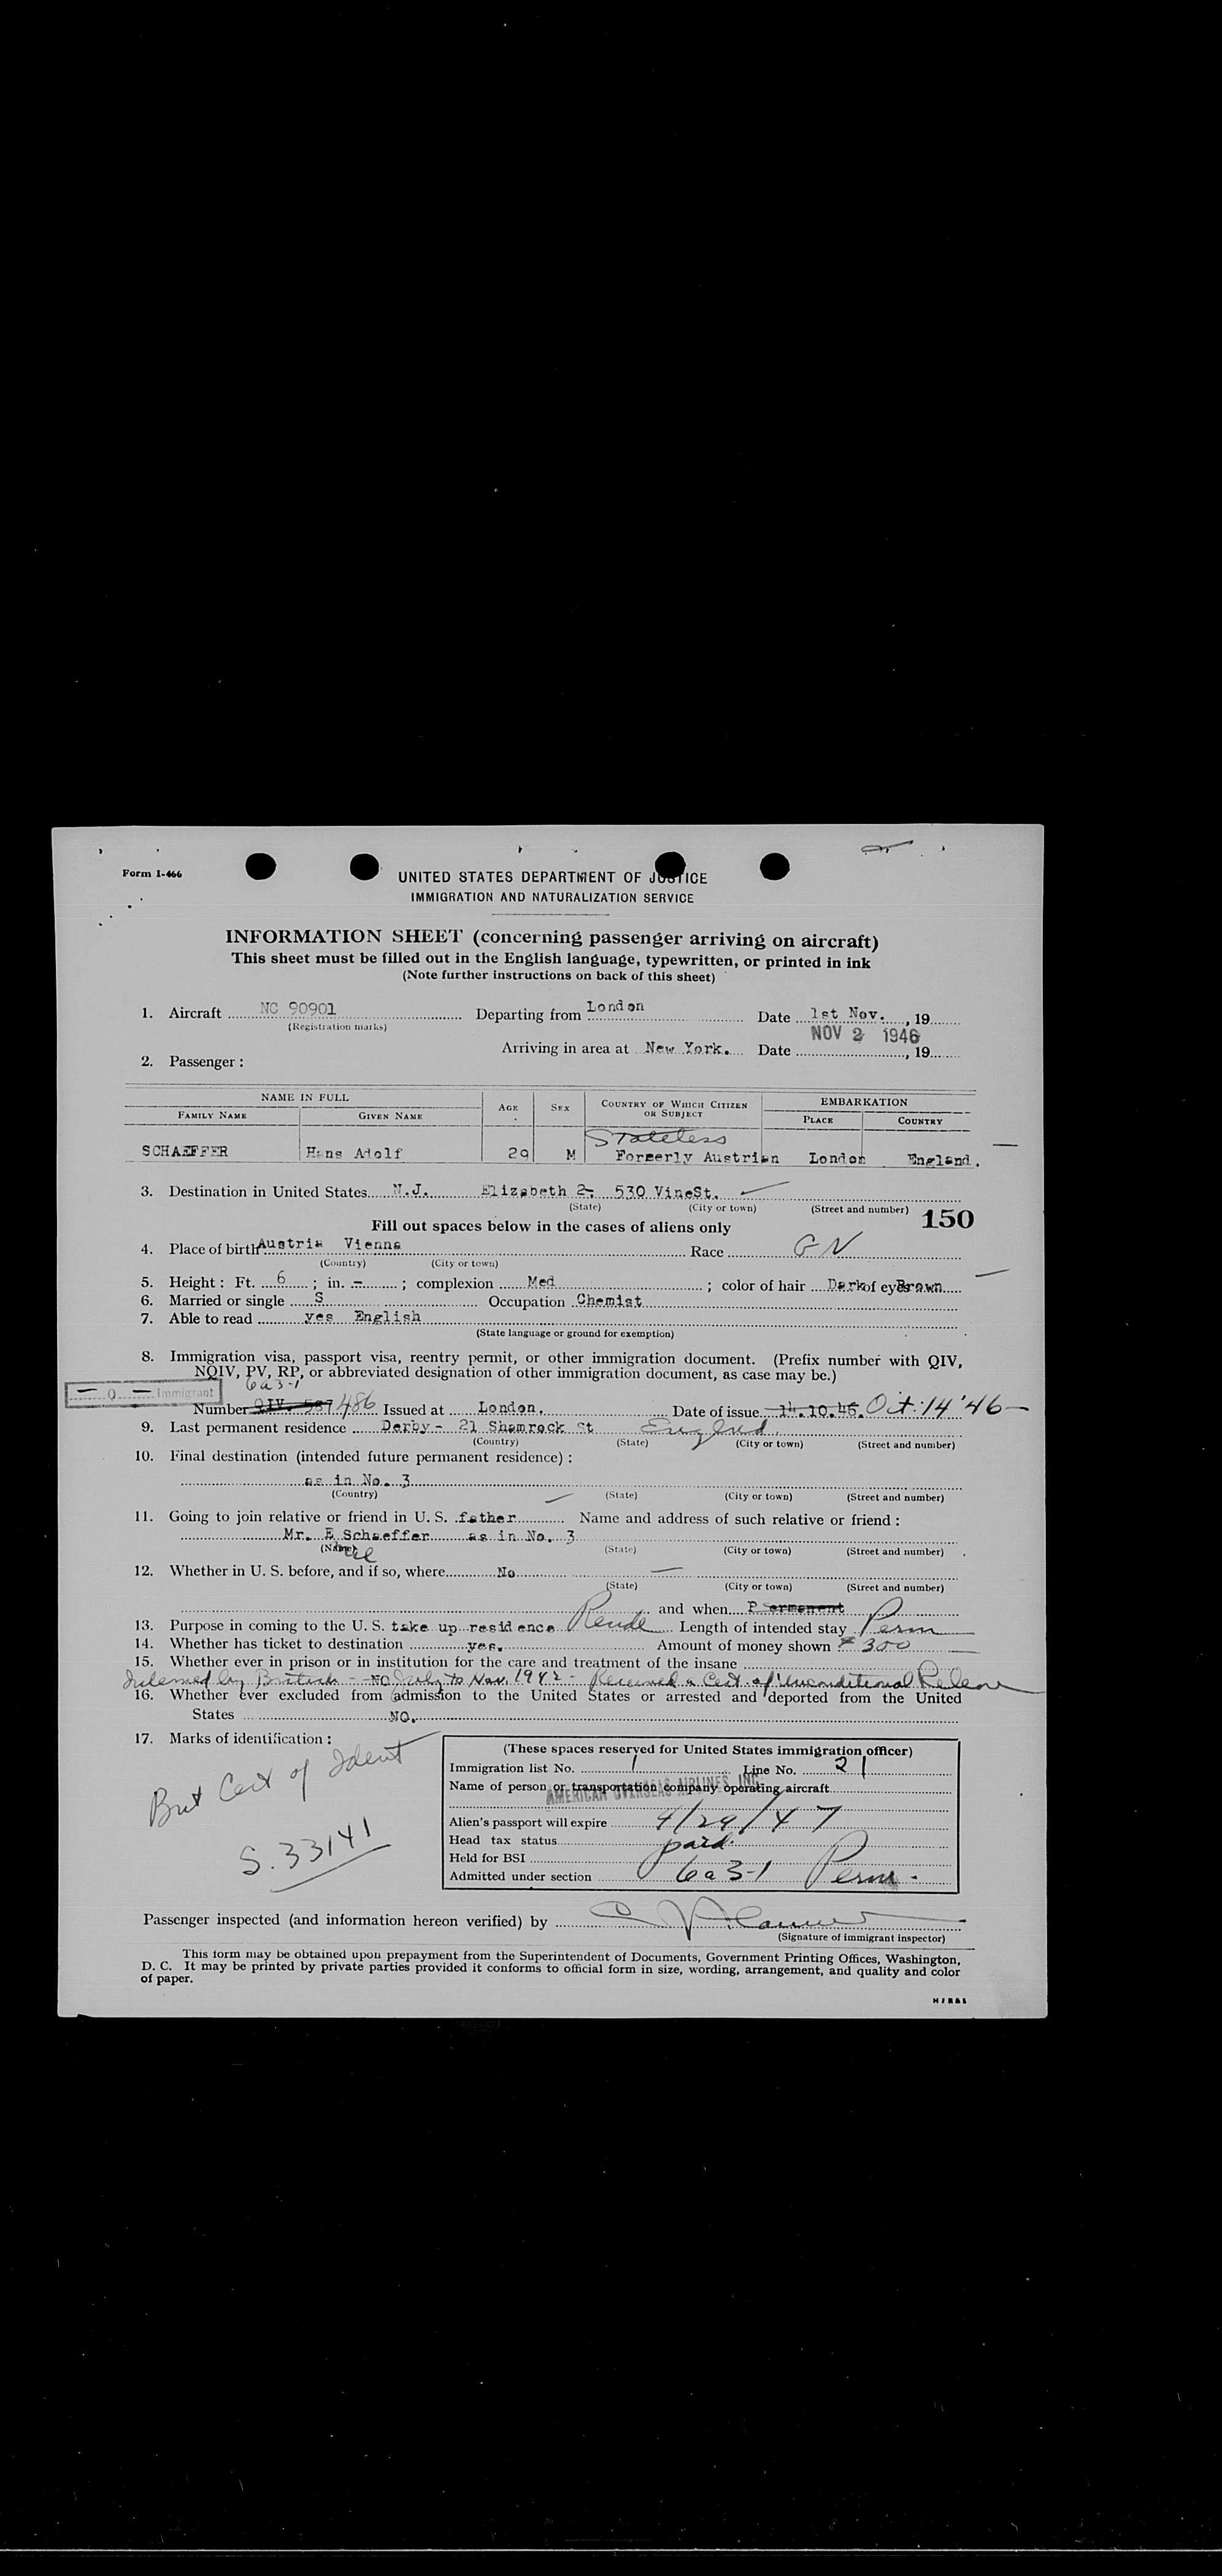 Form I-466
UNITED STATES DEPARTMENT OF JUSTICE
IMMIGRATION AND NATURALIZATION SERVICE
INFORMATION SHEET (concerning passenger arriving on aircraft)
This sheet must be filled out in the English language, typewritten, or printed in ink
(Note further instructions on back of this sheet)
1. Aircraft NC 90901 Departing from London Date 1st Nov., 19
(Registration marks)
NOV 2 1946
Arriving in area at New York. Date , 19
2. Passenger :
NAME IN FULL AGE SEX COUNTRY OF WHICH CITIZEN OR SUBJECT EMBARKATION
FAMILY NAME GIVEN NAME PLACE COUNTRY
Stateless
SCHAEFFER Hans Adolf 29 M Formerly Austrian London England.
3. Destination in United States N.J. Elizabeth 2, 530 VineSt.
(State) (City or town) (Street and number) 150
Fill out spaces below in the cases of aliens only
4. Place of birth Austria Vienna Race G N
(Country) (City or town)
5. Height : Ft. 6 ; in. - ; complexion Med ; color of hair Dark of eyes Brown
6. Married or single S Occupation Chemist
7. Able to read yes English
(State language or ground for exemption)
8. Immigration visa, passport visa, reentry permit, or other immigration document. (Prefix number with QIV,
NQIV, PV, RP, or abbreviated designation of other immigration document, as case may be.)
6a3-1
— Q — Immigrant
Number QIV. 537 486 Issued at London. Date of issue 14.10.46. Oct. 14 '46 —
9. Last permanent residence Derby - 21 Shamrock St England.
(Country) (State) (City or town) (Street and number)
10. Final destination (intended future permanent residence) :
as in No. 3
(Country) (State) (City or town) (Street and number)
11. Going to join relative or friend in U. S. father Name and address of such relative or friend :
Mr. E Schaeffer as in No. 3
(Name) (State) (City or town) (Street and number)
12. Whether in U. S. before, and if so, where No
(State) (City or town) (Street and number)
and when Permanent
13. Purpose in coming to the U. S. take up residence Reside Length of intended stay Perm
14. Whether has ticket to destination yes. Amount of money shown $ 300
15. Whether ever in prison or in institution for the care and treatment of the insane
Interned by British - NO July to Nov. 1942 - Received a Cert of Unconditional Release
16. Whether ever excluded from admission to the United States or arrested and deported from the United
States NO.
17. Marks of identification :
Brit Cert of Ident
S. 33141
(These spaces reserved for United States immigration officer)
Immigration list No. 1 Line No. 21
Name of person or transportation company operating aircraft
AMERICAN OVERSEAS AIRLINES INC.
Alien's passport will expire 4/29/47
Head tax status paid.
Held for BSI
Admitted under section 6a3-1 Perm.
Passenger inspected (and information hereon verified) by
(Signature of immigrant inspector)
This form may be obtained upon prepayment from the Superintendent of Documents, Government Printing Offices, Washington,
D. C. It may be printed by private parties provided it conforms to official form in size, wording, arrangement, and quality and color
of paper.